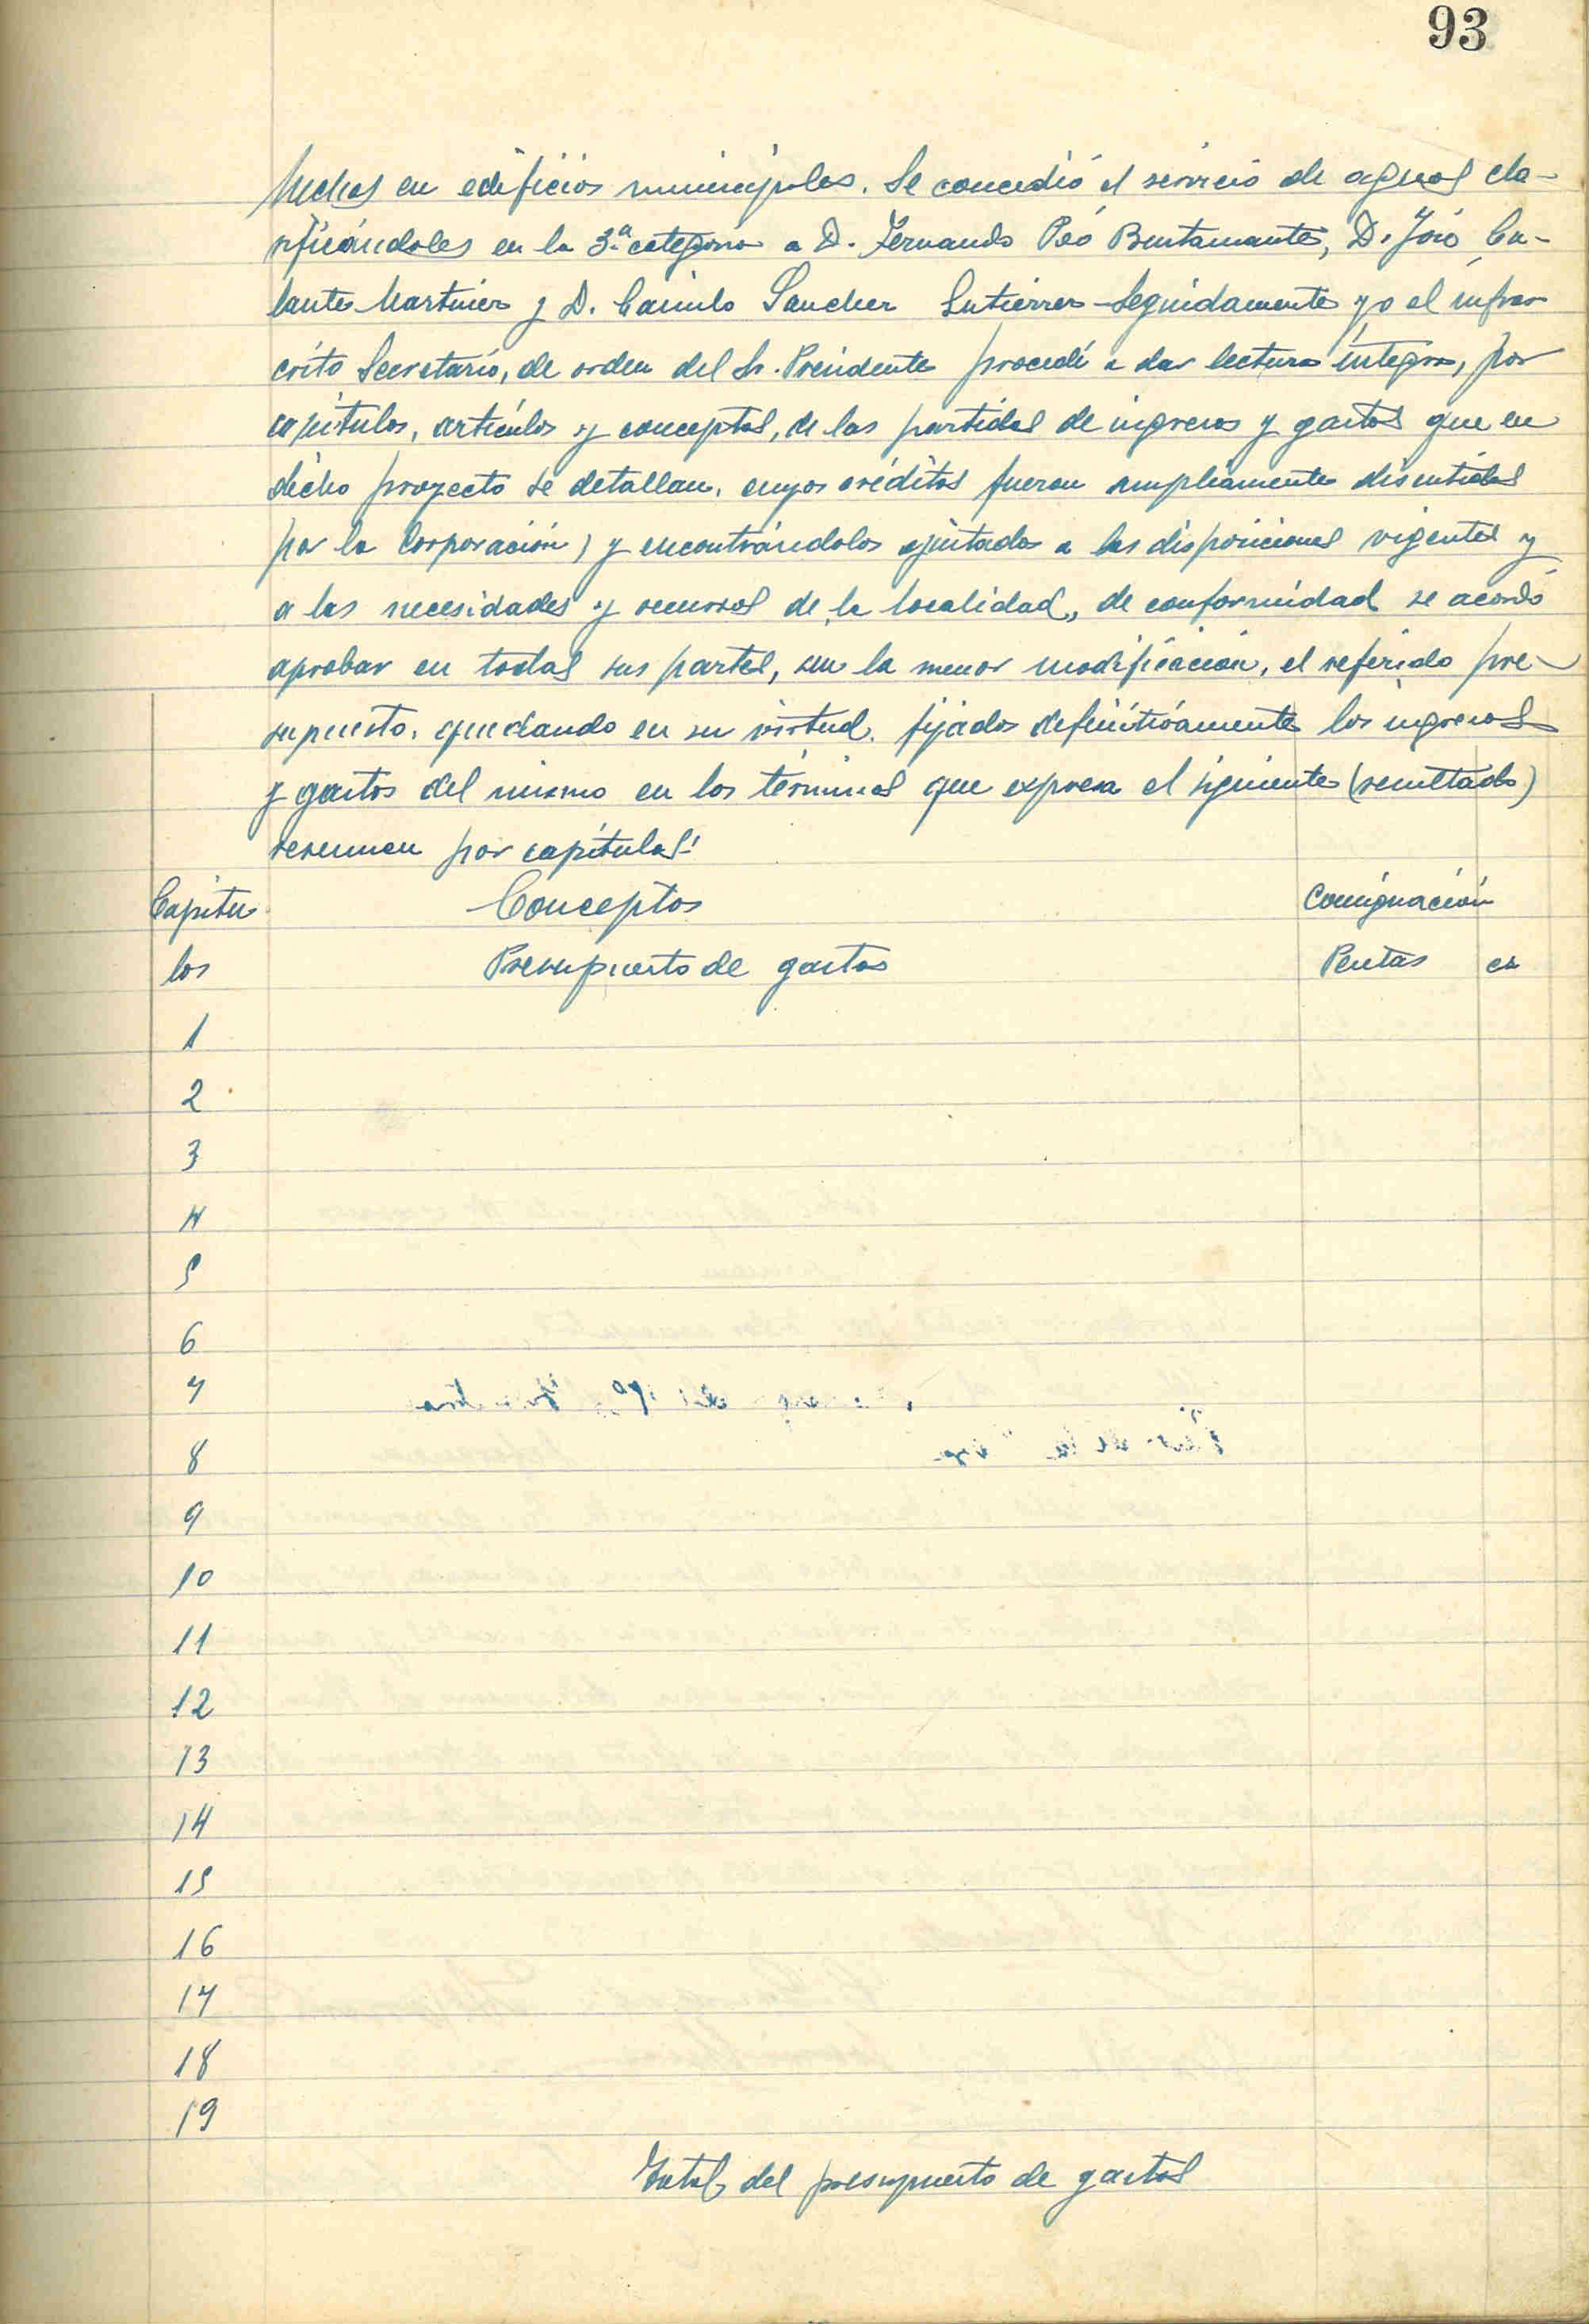 93
hechas en edificios municipales. Se concedió el servicio de aguas cla-
sificándoles en la 3ª categoria a D. Fernando Peó Bustamante, D. José Ca-
lante Martinez y D. Camilo Sanchez Gutierrez - Seguidamente yo el infras
crito Secretario, de orden del Sr. Presidente procedí a dar lectura íntegra, por
capítulos, artículos y conceptos, de las partidas de ingresos y gastos que en
dicho proyecto se detallan, cuyos créditos fueron ampliamente discutidos
por la Corporación, y encontrándolos ajustados a las disposiciones vigentes y
a las necesidades y recursos de la localidad, de conformidad se acordó
aprobar en todas sus partes, sin la menor modificación, el referido pre-
supuesto, quedando en su virtud, fijados definitivamente los ingresos
y gastos del mismo en los términos que expresa el siguiente (resultado)
resumen por capítulos:
Capítu Conceptos Consignación
los Presupuesto de gastos Pesetas cs
1
2
3
4
5
6
7
8
9
10
11
12
13
14
15
16
17
18
19
Total del presupuesto de gastos